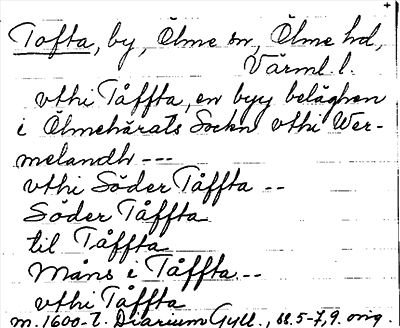 Tofta, by, Ölme sn, Ölme hd,
Värml. l.
vthi Tåffta, en byy beläghen
i Ölmehärats Sockn vthi Wer-
melandh ---
vthi Söder Tåffta --
Söder Tåffta
til Tåffta
Måns i Tåffta --
vthi Tåffta
m. 1600-t. Diarium Gyll., bl. 5-7, 9. orig.